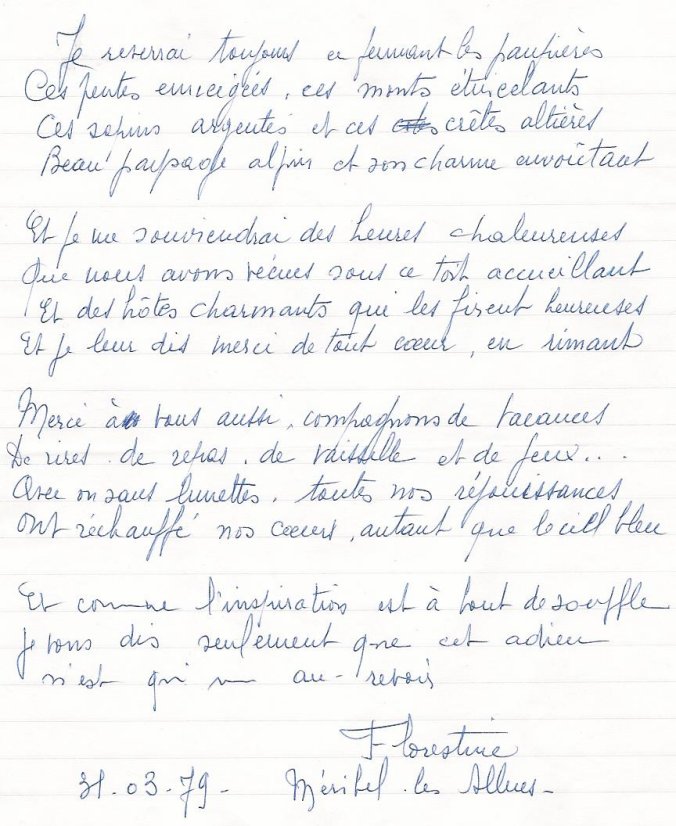 Je reverrai toujours en fermant les paupières
Ces pentes enneigées, ces monts étincelants
Ces sapins argentés et ces crêtes altières
Beau paysage alpin et son charme envoûtant
Et je me souviendrai des heures chaleureuses
Que nous avons vécues sous ce toit accueillant
Et des hôtes charmants qui les firent heureuses
Et je leur dis merci de tout cœur, en rimant
Merci à vous aussi, compagnons de vacances
De rires, de repas, de vaisselle et de jeux...
Avec ou sans lunettes, toutes nos réjouissances
Ont réchauffé nos cœurs, autant que le ciel bleu
Et comme l'inspiration est à bout de souffle
Je vous dis seulement que cet adieu
n'est qu'un au-revoir
Florestine
31.03.79- Méribel-les Allues-